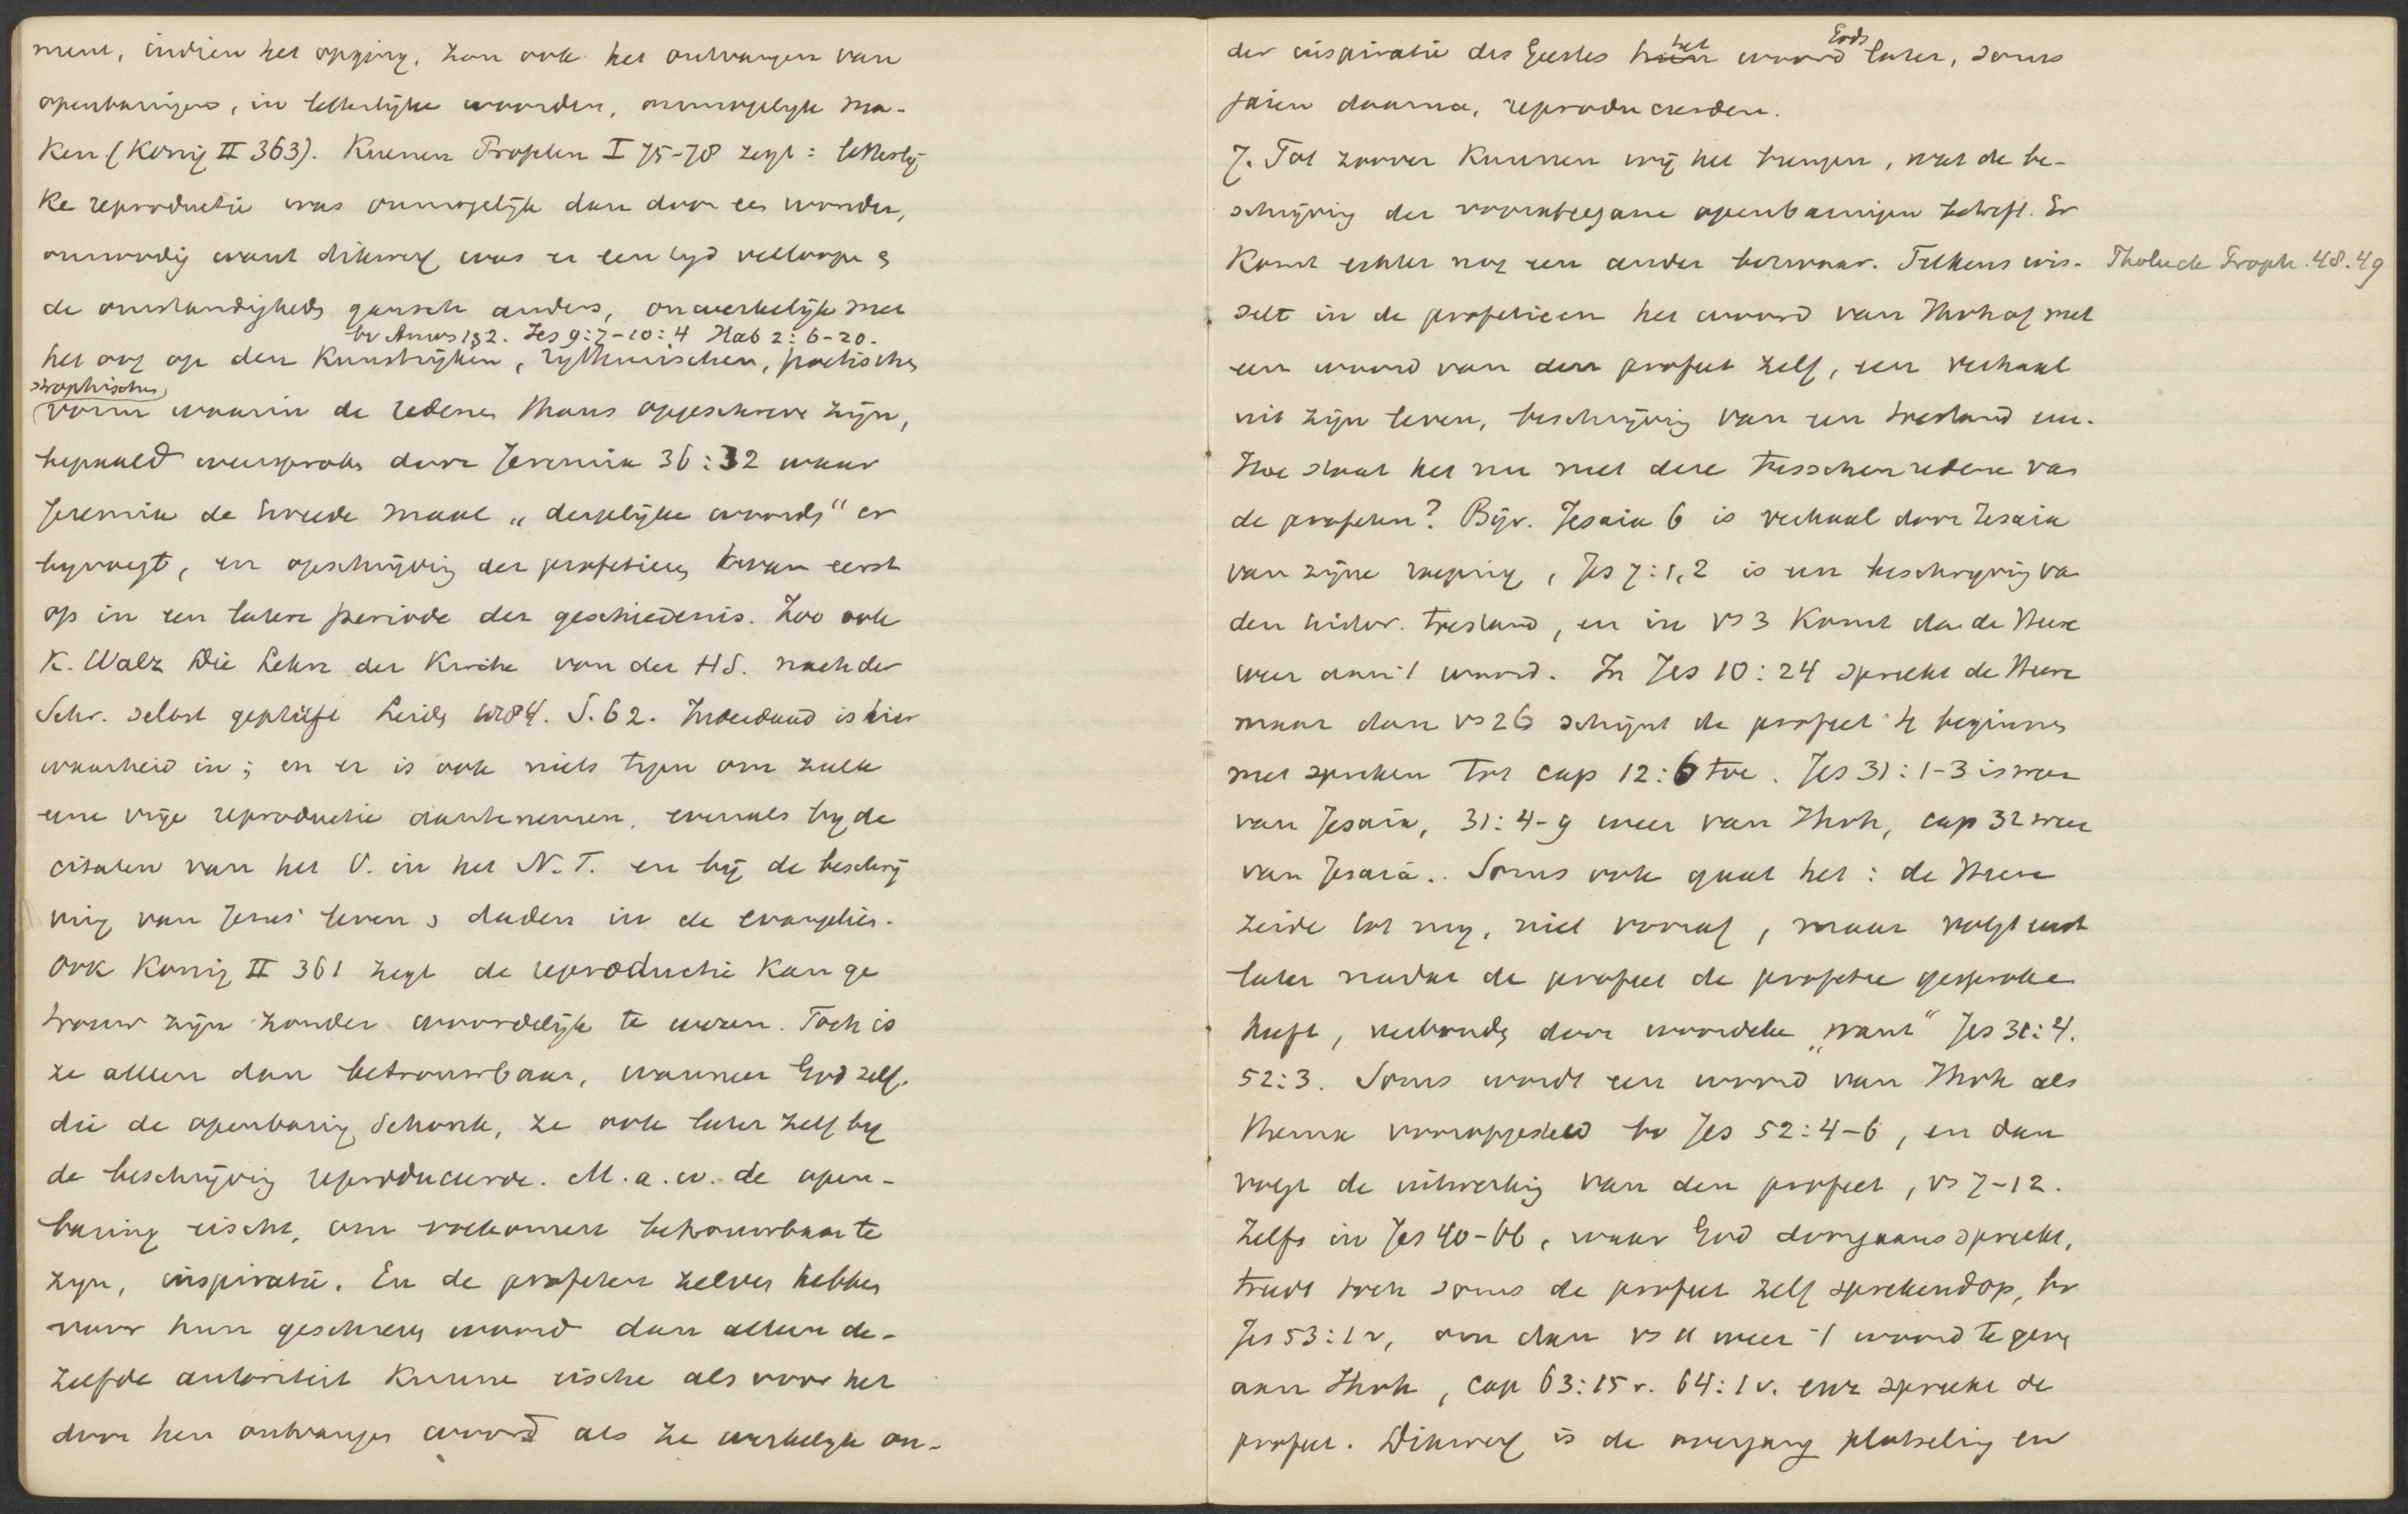 ment, indien het opging, zou ook het ontvangen van
openbaringen, in letterlijke woorden, onmogelijk ma-
ken (König II 363). Kuenen Profeten I 75-78 zegt: letterlij
ke reproductie was onmogelijk dan door een wonder,
onnoodig want dikwerf was er een tyd verloopen &
de omstandigheden gansch anders, onwerkelijk met
bv Amos 1 & 2. Jes 9:7-10:4 Hab 2:6-20.
het oog op den kunstrijken, rythmischen, poetischen
strophischen
vorm waarin de redenen thans opgeschreven zijn,
bepaald weersproken door Jeremia 36:32 waar
Jeremia de tweede maal „dergelijke woorden" er
byvoegt, en opschrijving der profetieen kwam eerst
op in een latere periode der geschiedenis. Zoo ook
K. Walz Die Lehre der Kirche von der H.S. nach der
Schr. selbst geprüft Leiden 1884. S. 62. Inderdaad is hier
waarheid in; en er is ook niets tegen om zulk
eene vrije reproductie aantenemen, evenals by de
citaten van het O. in het N.T. en bij de beschrij
ving van Jezus' leven & daden in de evangelien.
Ook König II 361 zegt de reproductie kan ge
trouw zijn zonder woordelijk te wezen. Toch is
ze alleen dan betrouwbaar, wanneer God zelf,
die de openbaring schonk, ze ook later zelf by
de beschrijving reproduceerde. M.a.w. de open-
baring eischt, om volkomen betrouwbaar te
zyn, inspiratie. En de profeten zelven hebben
voor hun geschreven woord dan alleen de-
zelfde autoriteit kunnen eischen als voor het
door hen ontvangen woord als ze werkelyk on-
der inspiratie des Geestes het woord Gods later, soms
jaren daarna, reproduceerden.
7. Tot zoover kunnen wij het brengen, wat de be-
schrijving der voorafgegane openbaringen betreft. Er
komt echter nog een ander bezwaar. Telkens wis-
Tholuck Proph. 48.49
selt in de profetieen het woord van Jhvh af met
een woord van den profeet zelf, een verhaal
uit zijn leven, beschrijving van een toestand enz.
Hoe staat het nu met deze tusschenredenen van
de profeten? Bijv. Jesaia 6 is verhaal door Jesaia
van zijne roeping, Jes 7:1,2 is een beschrijving van
den histor. toestand, en in vs 3 komt dan de Heere
weer aan 't woord. In Jes 10:24 spreekt de Heere
maar dan vs 26 schijnt de profeet te beginnen
met spreken tot cap 12:6 toe. Jes 31:1-3 is weer
van Jesaia, 31:4-9 weer van Jhvh, cap 32 weer
van Jesaia. Soms ook gaat het: de Heere
zeide tot my, niet vooraf, maar volgt eerst
later nadat de profeet de profetie gesproken
heeft, verbonden door woordeke „want" Jes 31:4.
52:3. Soms wordt een woord van Jhvh als
thema vooropgesteld bv Jes 52:4-6, en dan
volgt de uitwerking van den profeet, vs 7-12.
Zelfs in Jes 40-66, waar God doorgaans spreekt,
treedt toch soms de profeet zelf sprekend op, bv
Jes 53:1v, om dan vs 11 weer 't woord te geven
aan Jhvh, cap 63:15v. 64:1v. enz spreekt de
profeet. Dikwerf is de overgang plotseling en